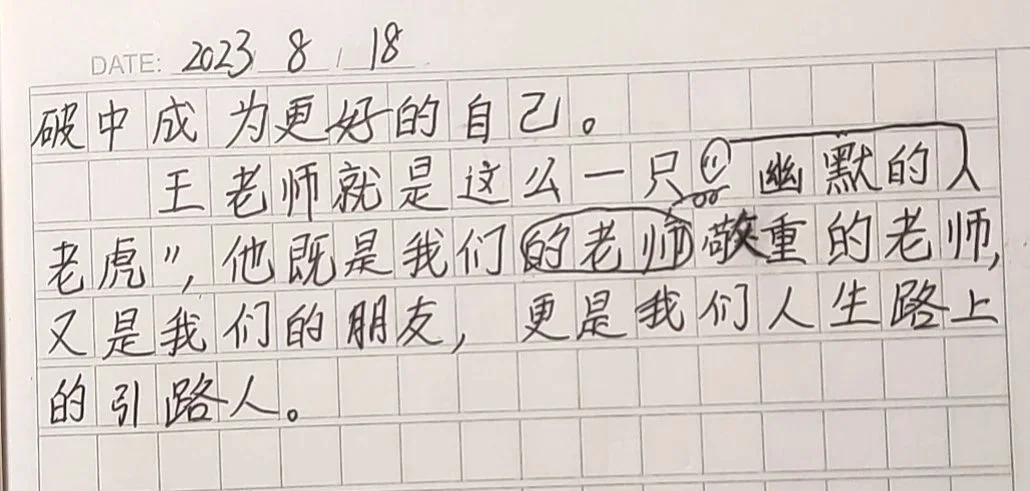 DATE: 2023 / 8 / 18
破中成为更好的自己。
王老师就是这么一只“幽默的
老虎”,他既是我们的老师敬重的老师,
又是我们的朋友,更是我们人生路上
的引路人。